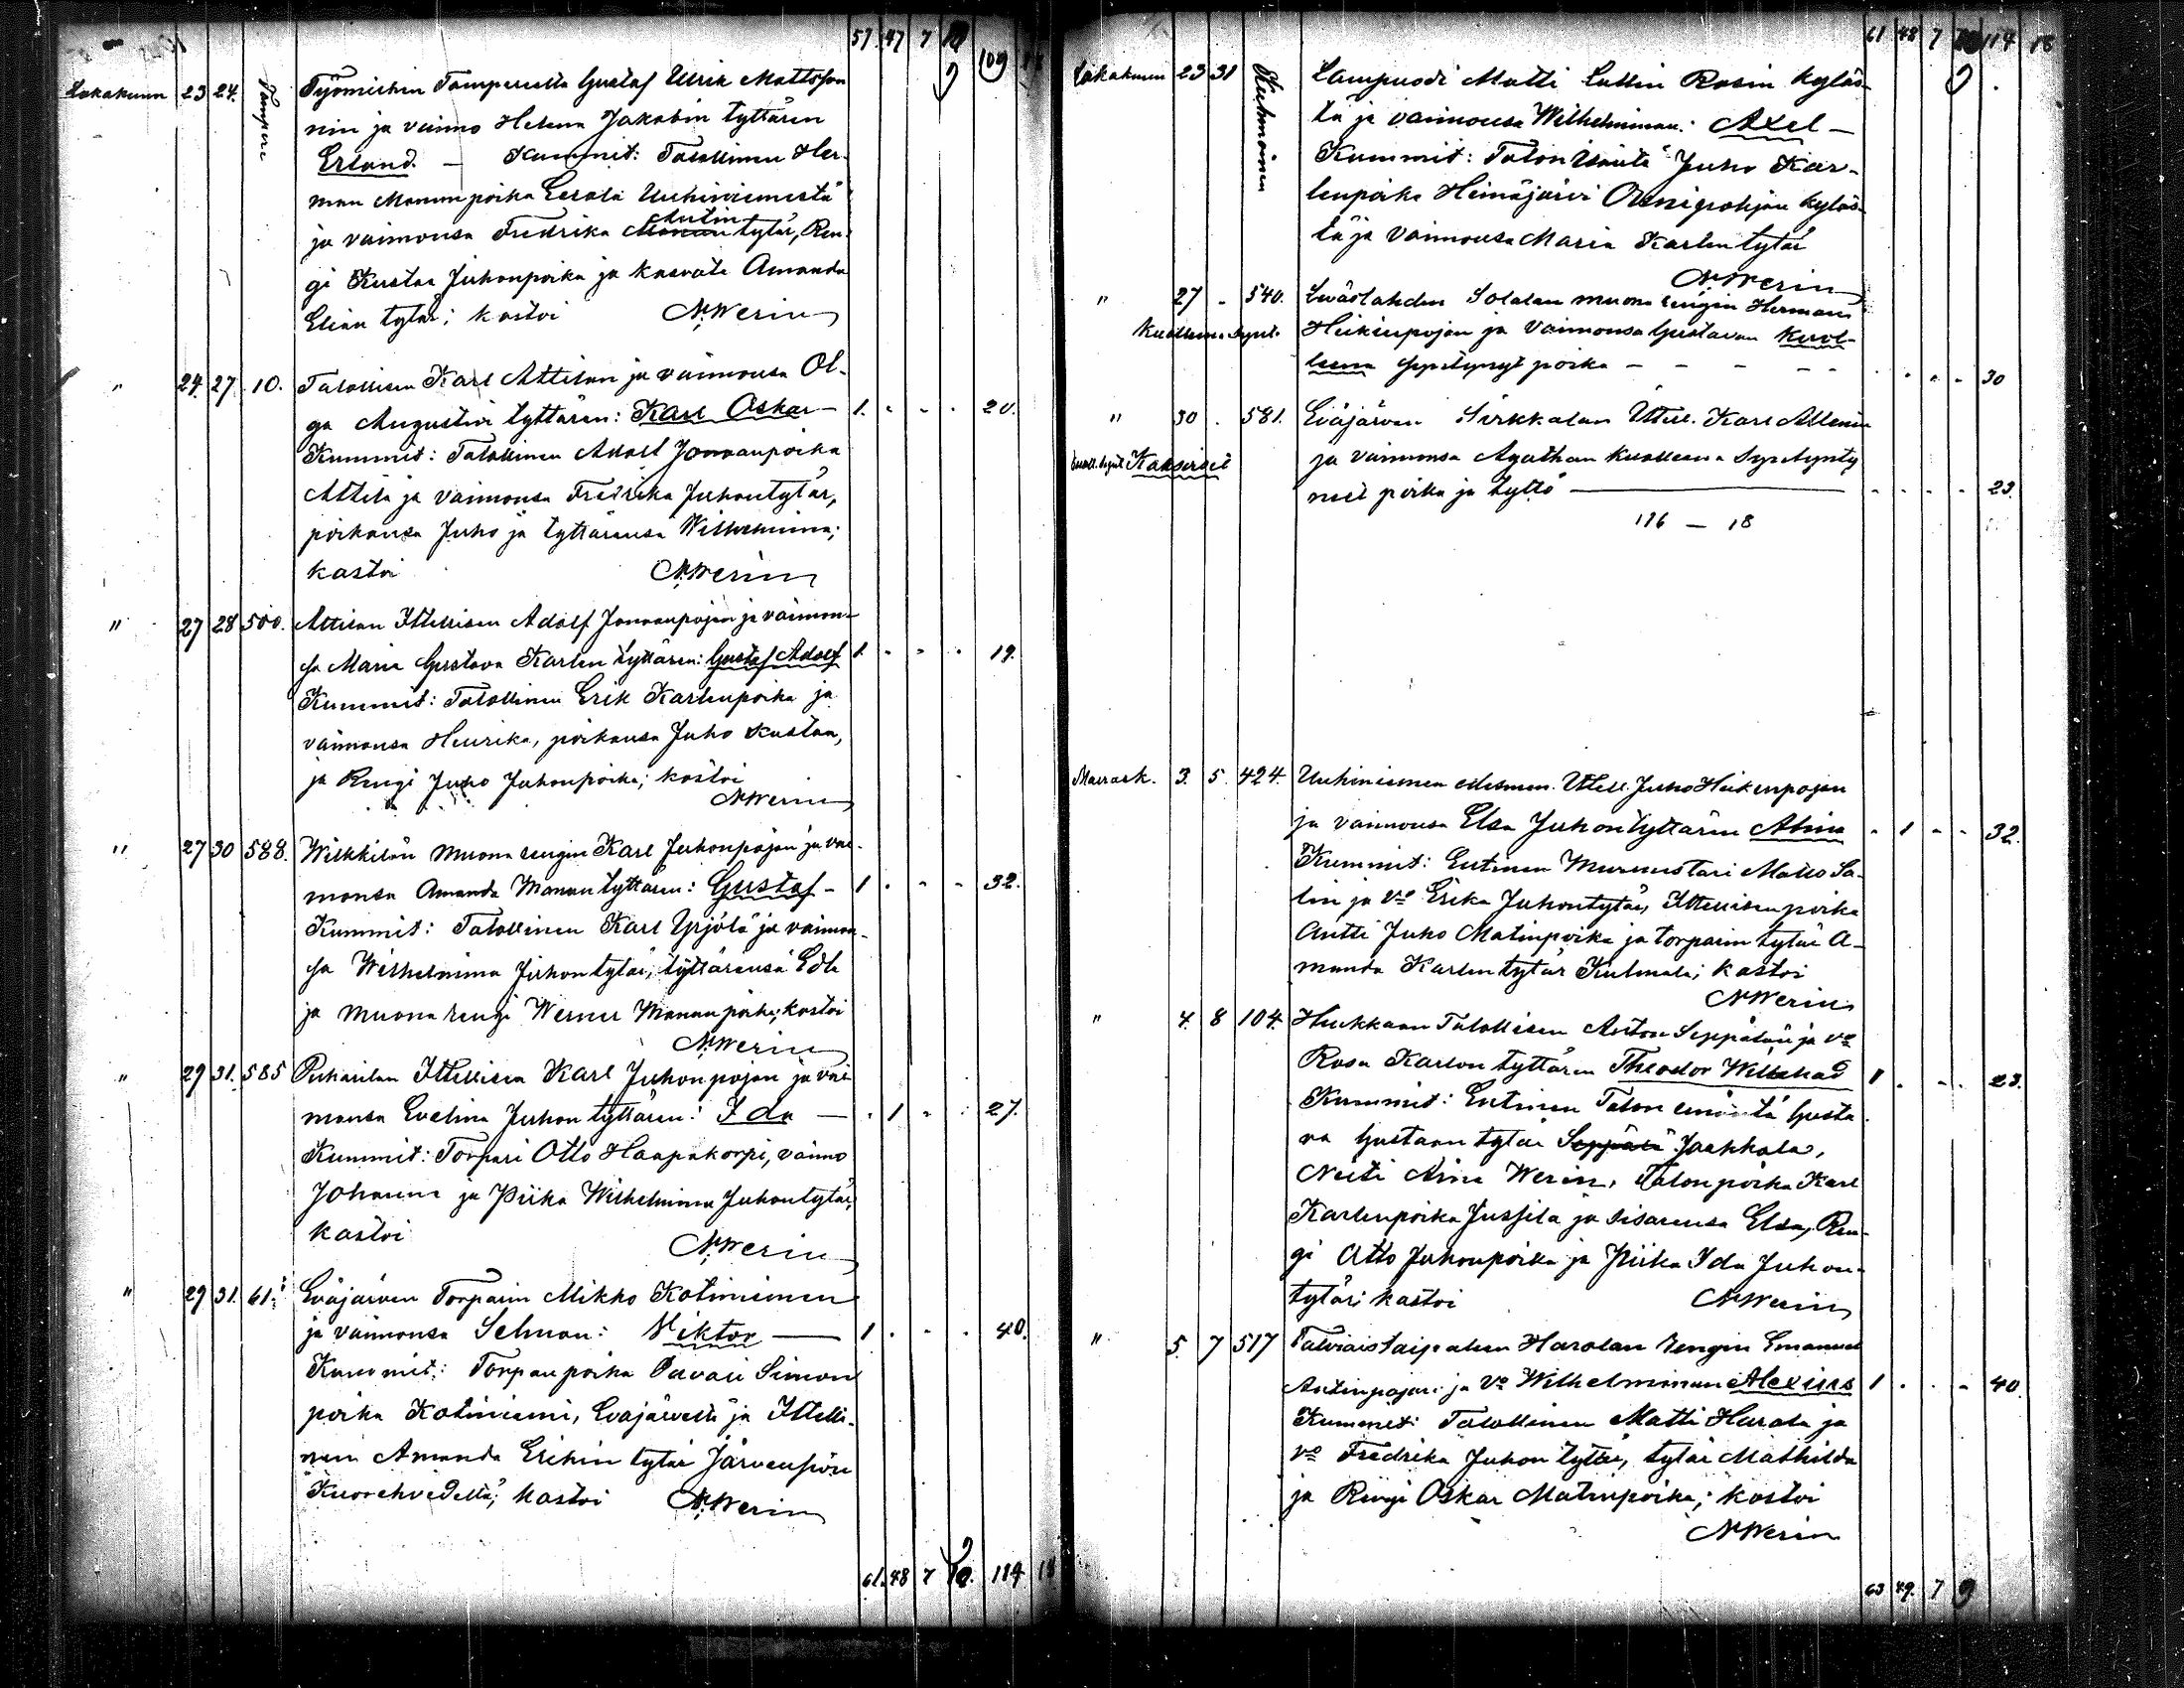 57 47 7 109
Lokakuun 23 24. Tampere Työmiehen Tampereella Gustaf Ulrik Mattsson
nin ja vaimo Helena Jakobin tyttären
Erland. — Kummit: Talollinen Her-
man Manunpoika Eerola Uuhiniemestä
ja vaimonsa Fredrika Antin tytär, Ren-
gi Kustaa Juhonpoika ja kasvate Amanda
Elian tytär; kastoi N. Werin
" 24. 27. 10. Talollisen Karl Attilan ja vaimonsa Ol-
ga Augustin tyttären: Karl Oskar — 1. - - - 20.
Kummit: Talollinen Adolf Joonaanpoika
Attila ja vaimonsa Fredrika Juhontytär,
poikansa Juho ja tyttärensä Wilhelmina;
kastoi N. Werin
" 27 28 500. Attilan Itsellisen Adolf Joonaanpojan ja vaimon-
sa Maria Gustava Karlen tyttären: Gustaf Adolf 1. - - - 19.
Kummit: Talollinen Erik Karlenpoika ja
vaimonsa Henrika, poikansa Juho Kustaa,
ja Rengi Juho Juhonpoika; kastoi
N. Werin
" 27 30 588. Wilkkilän Muona rengin Karl Juhonpojan ja vai-
monsa Amanda Manun tyttären: Gustaf — 1 - - - 32.
Kummit: Talollinen Karl Yrjölä ja vaimon-
sa Wilhelmina Juhontytär, tyttärensä Edla
ja muona rengi Werner Manunpoika; kastoi
N. Werin
" 29 31. 585 Pukarilan Itsellisen Karl Juhonpojan ja vai-
monsa Evelina Juhon tyttären: Ida — - 1 - - 27.
Kummit: Torpari Otto Haapakorpi, vaimo
Johanna ja Piika Wilhelmina Juhontytär;
kastoi N. Werin
" 29 31. 61. Eväjärven Torparin Mikko Kotiniemen
ja vaimonsa Selman: Viktor — 1 - - - 40.
Kummit: Torpanpoika Taavali Simon
poika Kotiniemi, Eväjärveltä ja Itselli-
nen Amanda Erikin tytär Järvenpään
Kuorehvedeltä; kastoi N. Werin
61. 48 7 10. 114 18
61 48 7 114 18
Lokakuun 23 31 Kuhmoinen Lampuodi Matti Lullin Rasin kyläs-
tä ja vaimonsa Wilhelminan: Axel —
Kummit: Talon Isäntä Juho Kar-
lenpoika Heinäjärvi Ouninpohjan kyläs-
tä ja vaimonsa Maria Karlentytär
N. Werin
" 27 - 540. Leväslahden Solalan muona rengin Herman
Kuolleena synt. Heikinpojan ja vaimonsa Gustavan kuol-
leena syyntynyt poika — — — — - - - - 30
" 30 . 581. Eväjärven Sirkkalan Itsell. Karl Allenin
Kuoll. synt. Kaksoiset ja vaimonsa Agathan kuolleena synnynty
neet poika ja tyttö — - - - - 23.
116 — 18
Marrask. 3. 5. 424. Uuhiniemen Itsell. Juho Heikinpojan
ja vaimonsa Elsa Juhontyttären Alma - 1 - - 32.
Kummit: Entinen Murmestari Matts Sa-
lin ja vo Erika Juhontytär, Itsellisenpoika
Antti Juho Matinpoika ja torparin tytär A-
manda Karlen tytär Kulmala; kastoi
N. Werin
" 4. 8 104. Hukkaan Talollisen Anton Seppälän ja vo
Rosa Karlon tyttären Theodor Willehad 1 - - - 23.
Kummit: Entinen Talon emäntä Gusta
va Gustaan tytär Seppälä Jaakkola,
Neiti Aina Werin, Talonpoika Karl
Karlenpoika Jussila ja sisarensa Elsa, Ren-
gi Otto Juhonpoika ja Piika Ida Juhon-
tytär; kastoi N. Werin
" 5 7 517 Talviaistaipaleen Harolan rengin Emanuel
Antinpojan ja vo Wilhelminan Alexius 1 - - - 40.
Kummit: Talollinen Matti Harola ja
vo Fredrika Juhon tytär, tytär Mathilda
ja Rengi Oskar Matinpoika; kastoi
N. Werin
63 49. 7 9